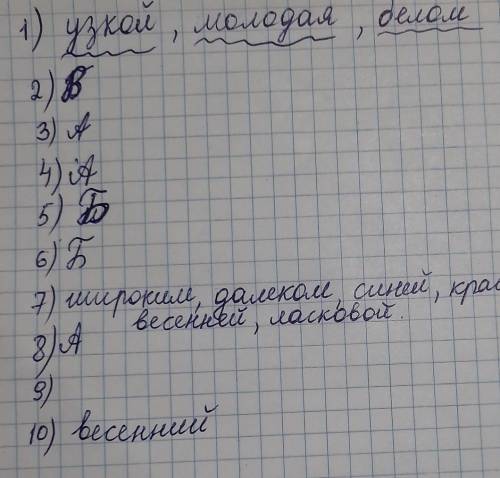 1) узкой, молодая, белом
2) В
3) А
4) А
5) Б
6) Б
7) широким, далеком, синей, крас
весенней, ласковой.
8) А
9)
10) весенний